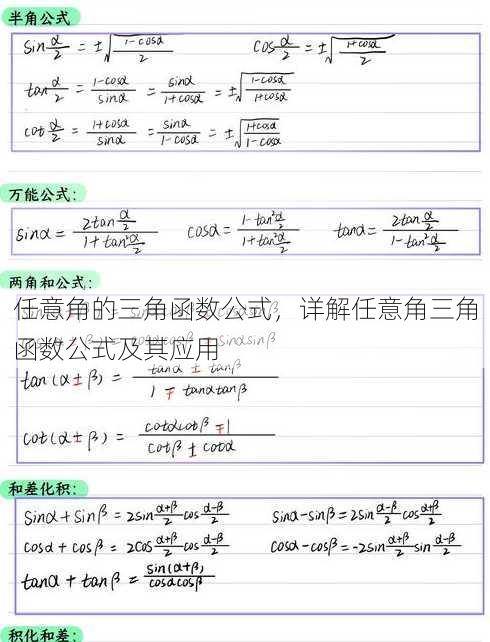 半角公式
sin α/2 = ±√(1-cosα)/2    cos α/2 = ±√(1+cosα)/2
tan α/2 = (1-cosα)/sinα = sinα/(1+cosα) = ±√(1-cosα)/(1+cosα)
cot α/2 = (1+cosα)/sinα = sinα/(1-cosα) = ±√(1+cosα)/(1-cosα)
万能公式:
sinα = (2tan α/2)/(1+tan² α/2)    cosα = (1-tan² α/2)/(1+tan² α/2)    tanα = (2tan α/2)/(1-tan² α/2)
两角和公式:
任意角的三角函数公式，详解任意角三角
函数公式及其应用
tan(α±β) = (tanα ± tanβ)/(1 ∓ tanαtanβ)
cot(α±β) = (cotαcotβ ∓1)/(cotβ ± cotα)
和差化积:
sinα + sinβ = 2sin (α+β)/2 cos (α-β)/2    sinα-sinβ = 2sin (α-β)/2 cos (α+β)/2
cosα + cosβ = 2cos (α+β)/2 cos (α-β)/2    cosα-cosβ = -2sin (α+β)/2 sin (α-β)/2
tanα + tanβ = sin(α+β)/(cosαcosβ)
积化和差: